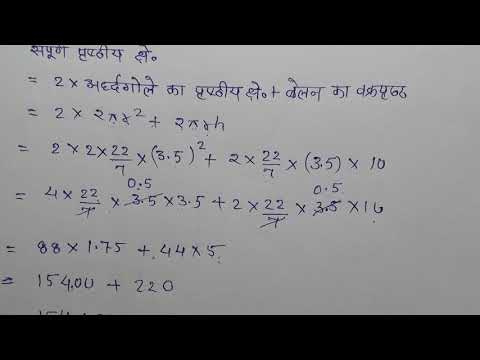 संपूर्ण पृष्ठीय क्षे॰
= 2 × अर्ध्दगोले का पृष्ठीय क्षे॰ + बेलन का वक्रपृष्ठ
= 2 × 2πr² + 2πrh
= 2 × 2 × 22/7 × (3.5)² + 2 × 22/7 × (3.5) × 10
0.5 0.5
= 4 × 22/7 × 3.5 × 3.5 + 2 × 22/7 × 3.5 × 10
= 88 × 1.75 + 44 × 5
= 154.00 + 220